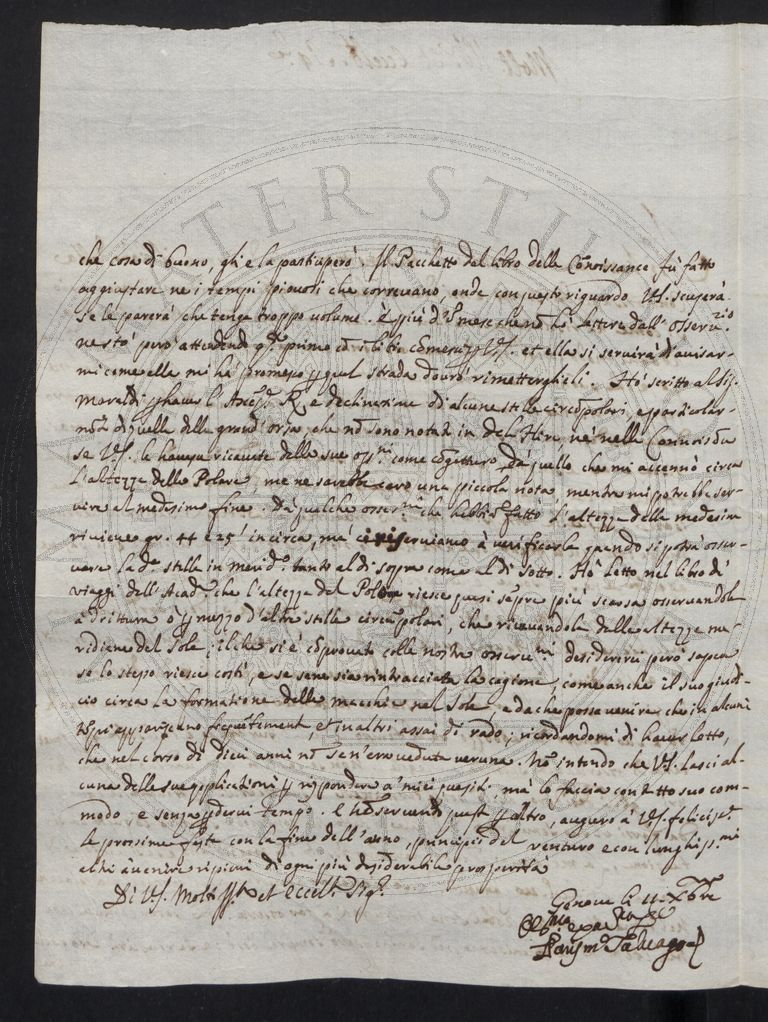 che cosa di buono, gli e la participerò. Il Pacchetto del libro della Connoissance fù fatto
aggiustare ne i tempi piovosi che correvano, onde con questo riguardo VS. scuserà
se le parerà che tenga troppo volume. È più d'un mese che nõ hò lettere dall' Osserv.rio
ne stò però attendendo
mi come ella mi hà promesso p qual strada dovrò rimetterglieli. Hò scritto al Sig.
Maraldi p haver l' Asc. R. e declinazione di alcune stelle circũpolari, e particolar-
m.te di quelle della grand' orsa, che nõ sono notate in de la Hire, ne nella Connoiss.
se VS. le havesse ricavate dalle sue oss.ni come cõgetturo da quello che mi accennò circa
l'altezza della Polare, me ne sarebbe caro una piccola nota, mentre mi potrebbe ser-
vire al medesimo fine. Da qualche osser.ne che habbiã fatto l'altezza della medesima
riviene gr. 44 e 25' in circa, mà ci riserviamo à verificarla quando si potrà osser-
vare la d.a stella in merid.o tanto al di sopra come al di sotto. Hò letto nel libro de'
viaggi dell' Acad.a che l'altezza del Polo riesce quasi sẽpre più scarsa osservandola
à drittura ò p mezzo d'altre stelle circũpolari, che ricavandola dalle altezze me-
ridiane del Sole; il che si è cõprovato colle nostre osserva.ni desidererei però sapere
se lo stesso riesce costì, e se se ne sia rintracciata la cagione, come anche il suo giudi-
cio circa la formatione delle macchie nel Sole, e da che possa venire che in alcuni
tẽpi appariscano frequẽtemente, et in altri assai di rado; ricordandomi di haver letto,
che nel corso di dieci anni nõ se n'era veduta veruna. Nõ intendo che VS. lasci al-
cuna delle sue applicationi p rispondere a' miei quesiti, mà lo faccia con tutto suo com-
modo, e senza perdervi tempo. E nõ servendo questa p altro, auguro à VS. feliciss.e
le prossime feste con la fine dell' anno, principio del venturo e con lunghiss.mi
altri à venire ripieni di ogni più desiderabile prosperità
Di VS. Molto Ill. et Eccell. Sig.
Genova li 11 Xbre